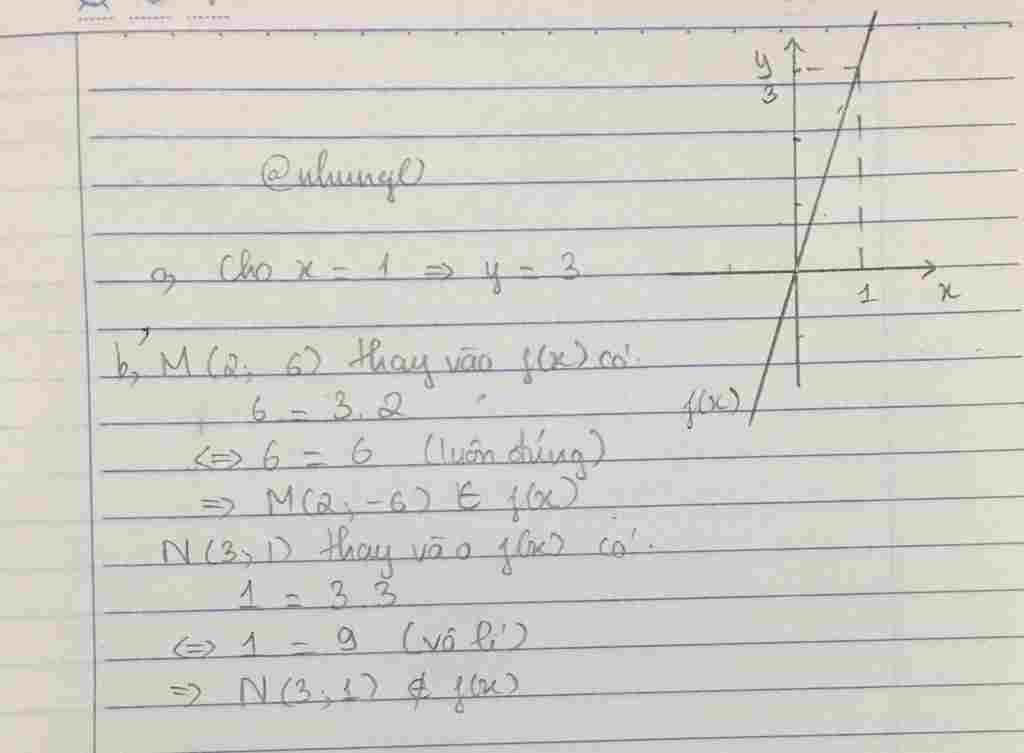 y
3
@nhungl
a, Cho x = 1 => y = 3
1
x
b, M(2; 6) thay vào f(x) có:
f(x)
6 = 3.2
<=> 6 = 6 (luôn đúng)
=> M(2; -6) ∈ f(x)
N(3; 1) thay vào f(x) có:
1 = 3.3
<=> 1 = 9 (vô lí)
=> N(3; 1) ∉ f(x)